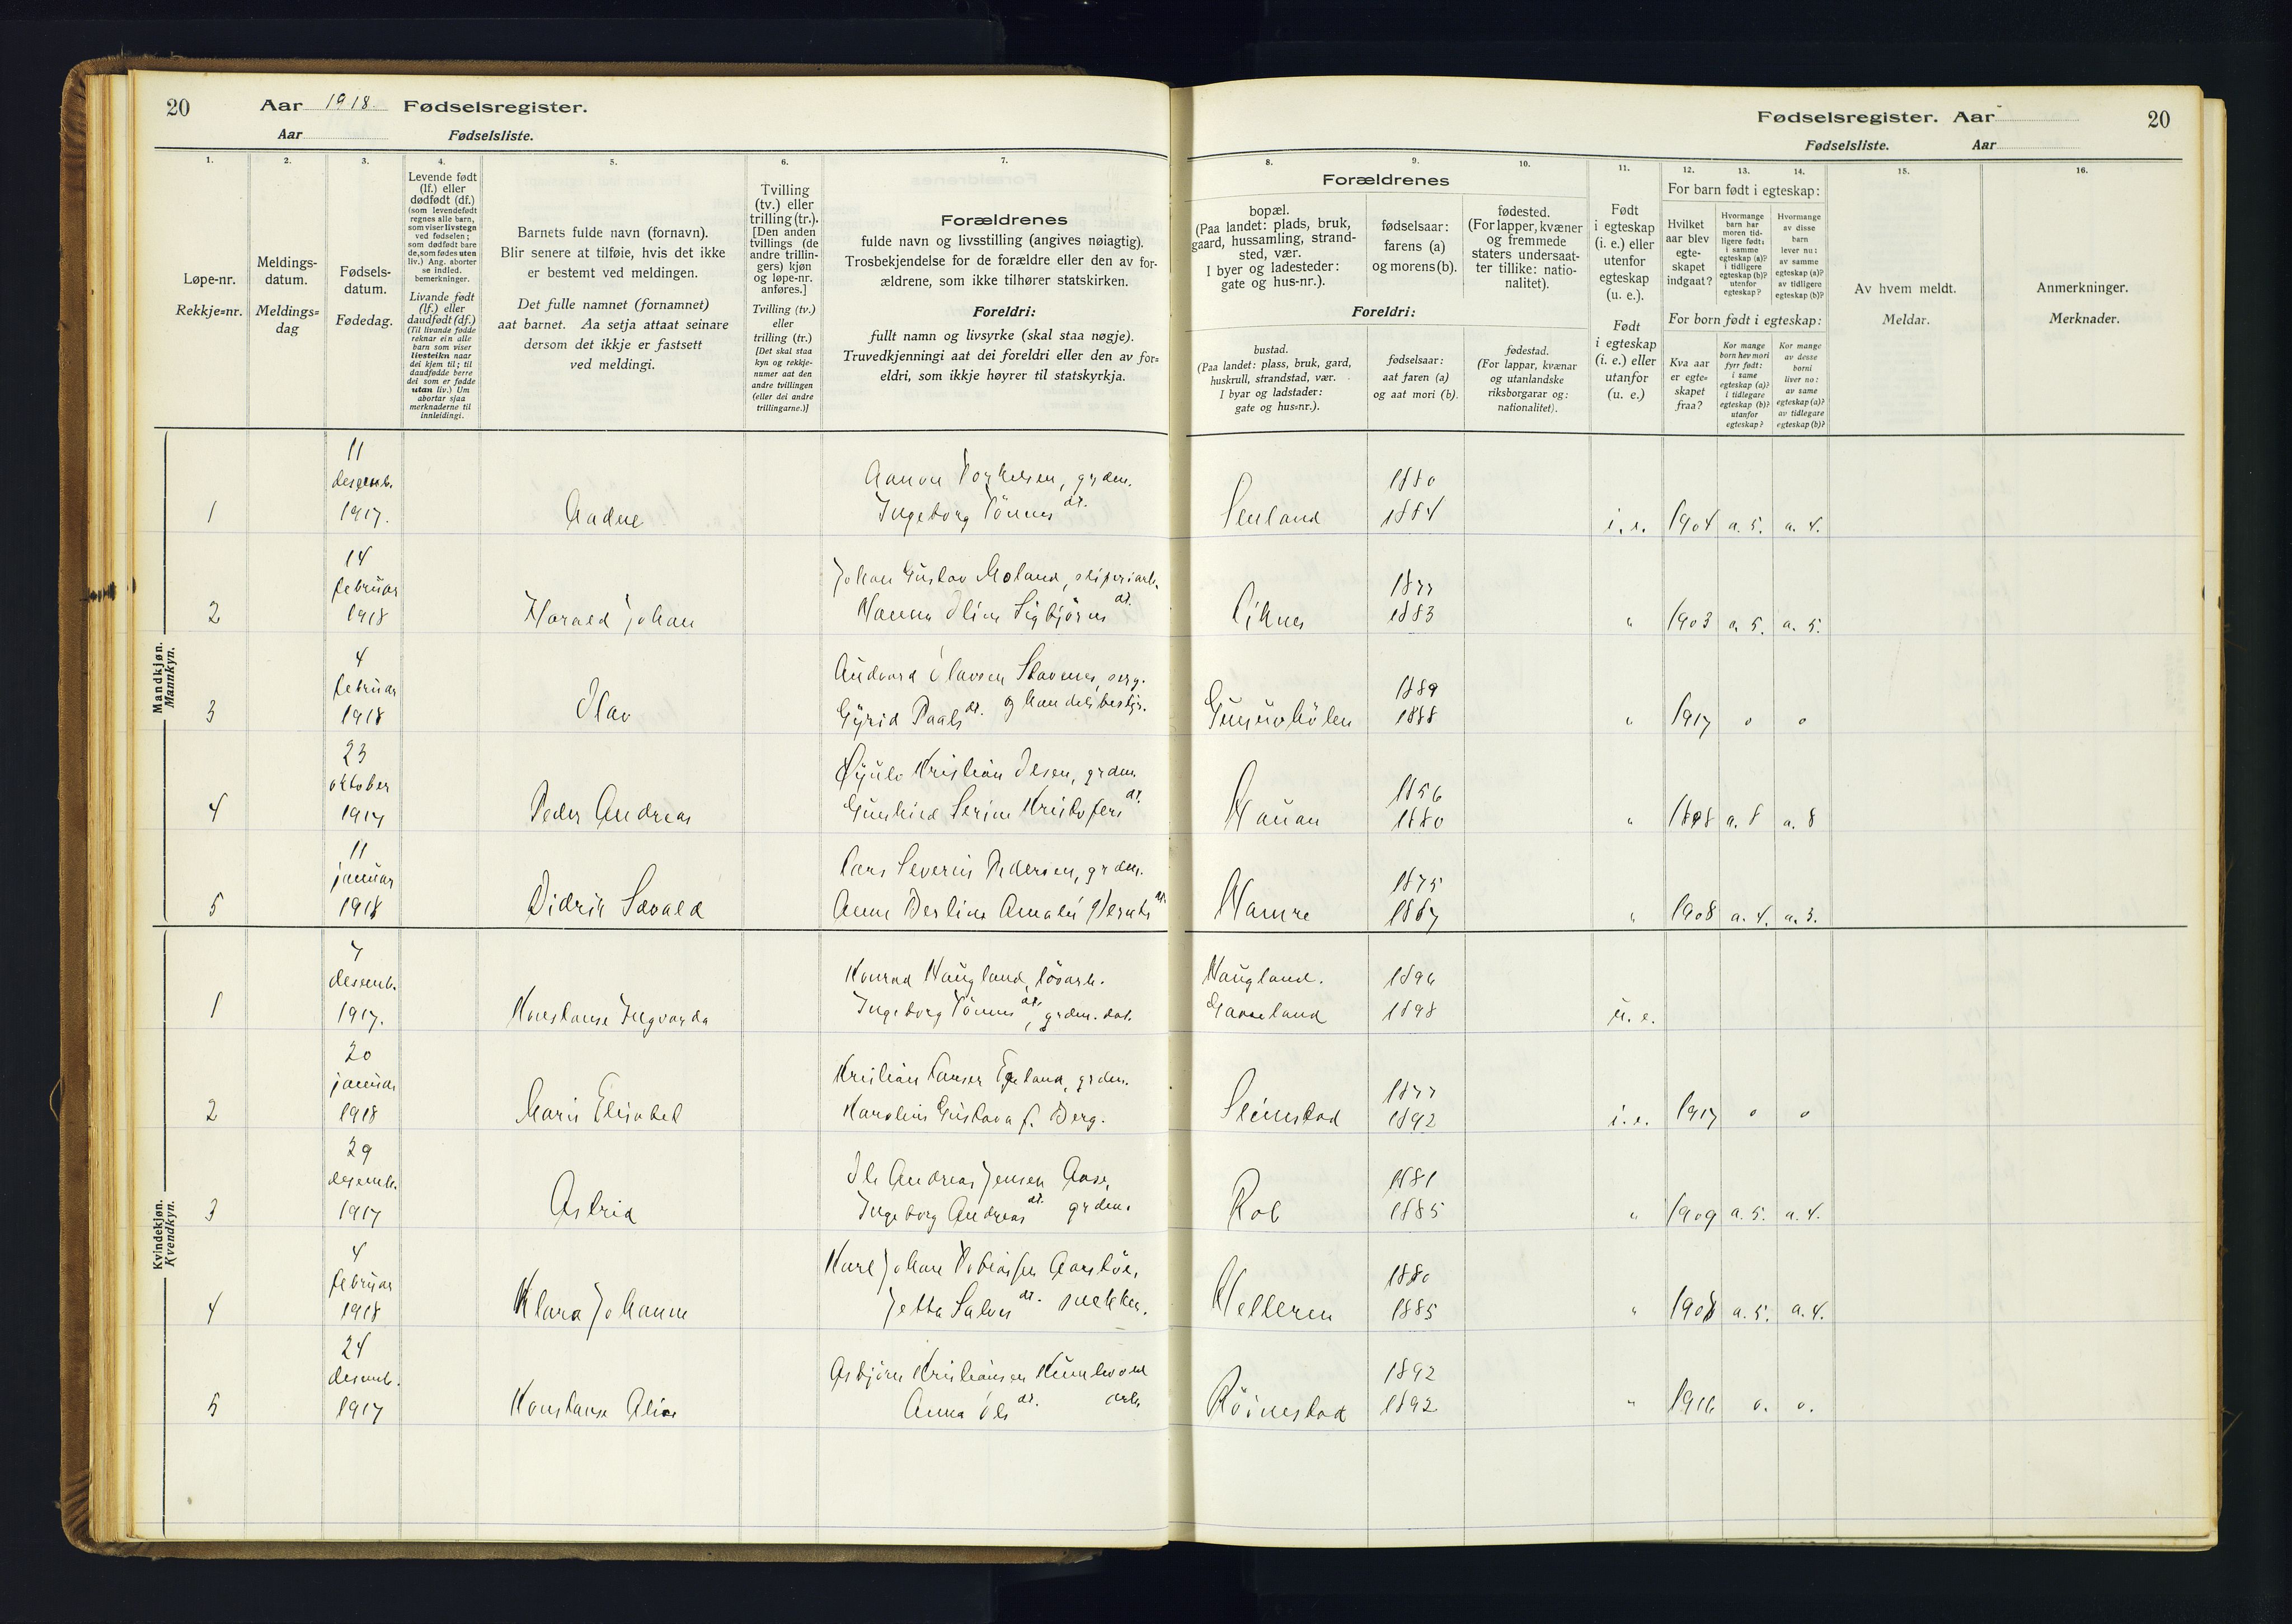 20 Aar 1918. Fødselsregister.
Aar Fødselsliste.
Fødselsregister. Aar 20
Fødselsliste. Aar
1. 2. 3. 4. 5. 6. 7. 8. 9. 10. 11. 12. 13. 14. 15. 16.
Løpe-nr.
Rekkje=nr.
Meldings-
datum.
Meldings=
dag
Fødsels-
datum.
Fødedag.
Levende født
(lf.) eller
dødfødt (df.)
(som levendefødt
regnes alle barn,
som viser livstegn
ved fødselen;
som dødfødt bare
de, som fødes uten
liv.) Ang. aborter
se indled.
bemerkninger.
Livande født
(lf.) eller
daudfødt (df.)
(Til livande fødde
reknar ein alle
barn som viser
livsteikn naar
dei kjem til; til
daudfødde berre
dei som er fødde
utan liv.) Um
abortar sjaa
merknaderne til
innleidingi.
Barnets fulde navn (fornavn).
Blir senere at tilføie, hvis det ikke
er bestemt ved meldingen.
Det fulle namnet (fornamnet)
aat barnet. Aa setja attaat seinare
dersom det ikkje er fastsett
ved meldingi.
Tvilling
(tv.) eller
trilling (tr.).
[Den anden
tvillings (de
andre trillin-
gers) kjøn
og løpe-nr.
anføres.]
Tvilling (tv.)
eller
trilling (tr.)
[Det skal staa
kyn og rekkje-
numer aat den
andre tvillingen
(eller dei andre
trillingarne.)]
Forældrenes
fulde navn og livsstilling (angives nøiagtig).
Trosbekjendelse for de forældre eller den av for-
ældrene, som ikke tilhører statskirken.
Foreldri:
fullt namn og livsyrke (skal staa nøgje).
Truvedkjenningi aat dei foreldri eller den av for=
eldri, som ikkje høyrer til statskyrkja.
Forældrenes
bopæl.
(Paa landet: plads, bruk,
gaard, hussamling, strand-
sted, vær.
I byer og ladesteder:
gate og hus-nr.).
fødselsaar:
farens (a)
og morens (b).
fødested.
(For lapper, kvæner
og fremmede
staters undersaat-
ter tillike: natio-
nalitet).
Foreldri:
bustad.
(Paa landet: plass, bruk, gard,
huskrull, strandstad, vær.
I byar og ladstader:
gate og hus=nr.).
fødselsaar:
aat faren (a)
og aat mori (b).
fødestad.
(For lappar, kvænar
og utanlandske
riksborgarar og:
nationalitet).
Født
i egteskap
(i. e.) eller
utenfor
egteskap
(u. e.).
Født
i egteskap
(i. e.) eller
utanfor
(u. e.)
For barn født i egteskap:
Hvilket
aar blev
egte-
skapet
indgaat?
Hvormange
barn har
moren tid-
ligere født:
i samme
egteskap (a)?
i tidligere
egteskap (b)?
utenfor
egteskap?
Hvormange
av disse
barn
lever nu:
av samme
egteskap (a)?
av tidligere
egteskap (b)?
For born født i egteskap:
Kva aar
er egte-
skapet
fraa?
Kor mange
born hev mori
fyrr født:
i same
egteskap (a)?
i tidlegare
egteskap (b)?
utanfor
egteskap?
Kor mange
av desse
borni
liver no:
av same
egteskap (a)?
av tidlegare
egteskap (b)?
Av hvem meldt.
Meldar.
Anmerkninger.
Merknader.
Mandkjøn.
Mannkyn.
11
desemb. Torkelsen, grdm. 1880
1 1917. Aadne Ingeborg Tönnes dt. Senland 1884 i. e. 1904 a. 5. a. 4.
14
februar Johan Gustav Moland, 1877
2 1918 Harald Johan Hanna Oline Sigbjörns dt. 1883 " 1903 a. 5. a. 5.
4
februar Olavsen Stavenes, serg. 1889
3 1918 Olav Gyrid Paals dt. og handelsbestyr. 1888 " 1917 o o
23
oktober Kristian Olsen, grdm. 1856
4 1917 Peder Andreas Gunhild Serine Kristofers dt. Hauan 1880 " 1898 a. 8 a. 8
11
januar Lars Severin Pedersen, grdm. 1875
5 1918 Didrik Sevald Anne Berline Amalie dt. Hamre 1867 " 1908 a. 4. a. 3.
Kvindekjøn.
Kvendkyn.
7
desemb. Konrad Haugland, lösarb. Haugland. 1896
1 1917. Konstanse Ingvarda Ingeborg Tönnes dt., grdm. dat. Gaaseland 1898 u. e.
20
januar Kristian Larsen Egeland, grdm. 1877
2 1918 Marie Elisabet Karoline Gustava f. Berg. Steinstad 1892 i. e. 1917 o o
29
desemb. Ole Andreas Jensen Aase, 1881
3 1917 Astrid Ingeborg Andreas dt. grdm. Rob 1885 " 1909 a. 5. a. 4.
4
februar Karl Johan Tobiassen 1880
4 1918 Klara Johanne Jetta Salves dt. snekker. Helleren 1885 " 1908 a. 5. a. 4.
24
desemb. Asbjörn Kristiansen Kumlevold 1892
5 1917 Konstanse Alise Anna Ols dt. arb. Röinestad 1892 " 1916 o. o.